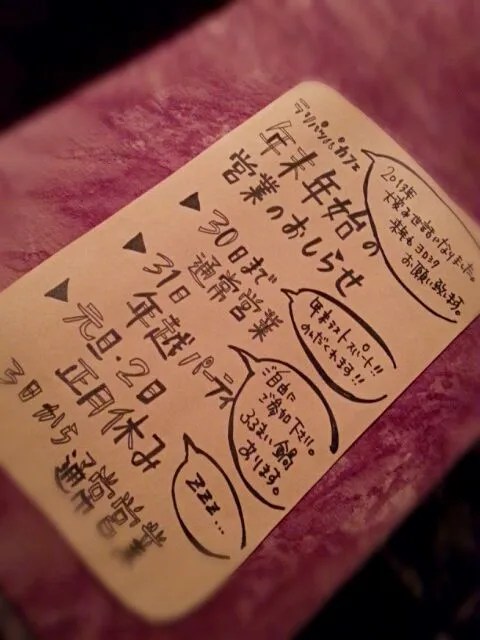 ラリパッパカフェ
年末年始の
営業のおしらせ
2013年
大変お世話になりました。
来年もヨロシク
お願い致します。
▼30日まで
通常営業
年末ラストスパート!!
のんだくれます!!
▼31日
年越パーティ
ご自由に
ご参加下さい。
ふるまい鍋
あります。
▼元旦・2日
正月休み
zzz...
3日から
通常営業